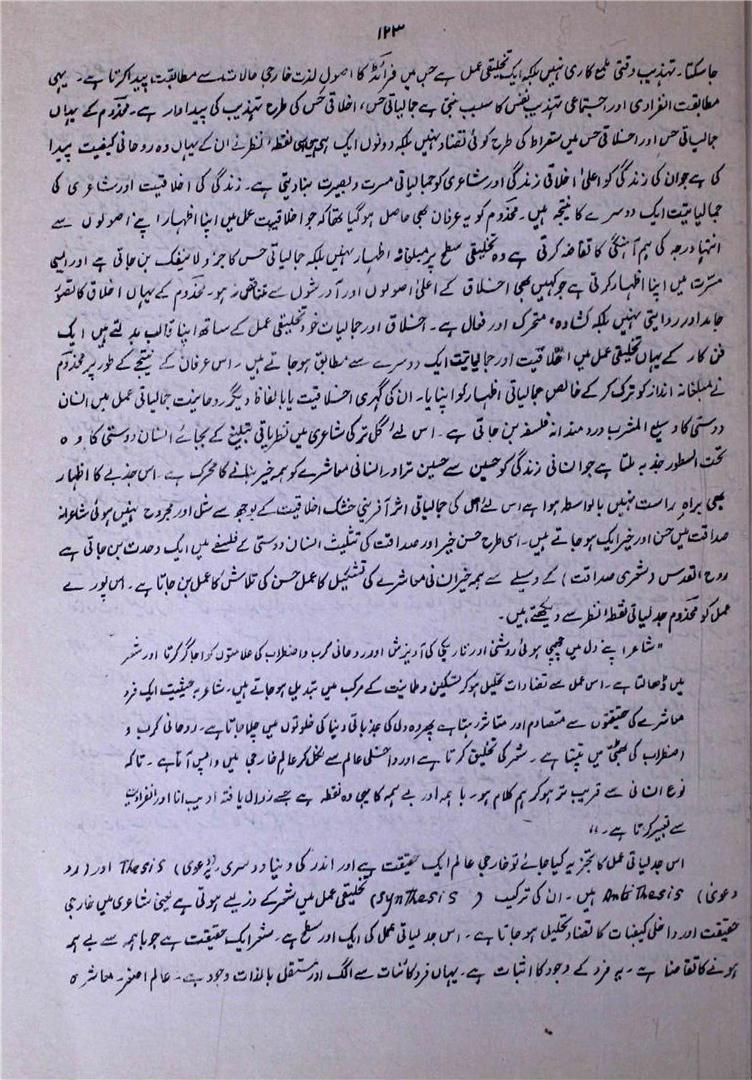 ۱۲۳
جاسکتا۔ تہذیب وقتی ملمع کاری نہیں بلکہ ایک تخلیقی عمل ہے جس میں فرائڈ کا اصول لذت خارجی حالات سے مطابقت پیدا کرتا ہے۔ یہی
مطابقت انفرادی اور اجتماعی تہذیب نفس کا سبب بنتی ہے جمالیاتی حس، اخلاقی حس کی طرح تہذیب کی پیداوار ہے۔ مخدوم کے یہاں
جمالیاتی حس اور اخلاقی حس میں سقراط کی طرح کوئی تضاد نہیں بلکہ دونوں ایک ہی ہیں نقطۂ نظر نے ان کے یہاں وہ روحانی کیفیت پیدا
کی ہے جو ان کی زندگی کو اعلیٰ اخلاقی زندگی اور شاعری کو جمالیاتی مسرت و بصیرت بنا دیتی ہے۔ زندگی کی اخلاقیت اور شاعری کی
جمالیاتیت ایک دوسرے کا نتیجہ ہیں۔ مخدوم کو یہ عرفان بھی حاصل ہو گیا تھا کہ جو اخلاقیت عمل میں اپنا اظہار اپنے اصولوں سے
انتہا درجہ کی ہم آہنگی کا تقاضہ کرتی ہے وہ تخلیقی سطح پر مبلغانہ اظہار نہیں بلکہ جمالیاتی حس کا جزو لاینفک بن جاتی ہے اور ایسی
مسرت میں اپنا اظہار کرتی ہے جو کہیں بھی اخلاق کے اعلیٰ اصولوں اور آدرشوں سے متناقض نہ ہو۔ مخدوم کے یہاں اخلاق کا تصور
جامد اور روایتی نہیں بلکہ کشادہ، متحرک اور فعال ہے۔ اخلاق اور جمالیات خود تخلیقی عمل کے ساتھ اپنا قالب بدلتے ہیں ایک
فن کار کے یہاں تخلیقی عمل میں اخلاقیت اور جمالیاتیت ایک دوسرے سے مطابق ہو جاتے ہیں۔ اس عرفان کے نتیجے کے طور پر مخدوم
نے مبلغانہ انداز کو ترک کر کے خالص جمالیاتی اظہار کو اپنایا۔ ان کی گہری اخلاقیت یا بالفاظ دیگر روحانیت جمالیاتی عمل میں انسان
دوستی کا وسیع المشرب دردمندانہ فلسفہ بن جاتی ہے۔ اس لیے گل تر کی شاعری میں نظریاتی تبلیغ کے بجائے انسان دوستی کا وہ
تحت السطور جذبہ ملتا ہے جو انسانی زندگی کو حسین سے حسین تر اور انسانی معاشرے کو ہمہ خیر بنانے کا محرک ہے۔ اس جذبے کا اظہار
بھی براہ راست نہیں بالواسطہ ہوا ہے اس لئے اس کی جمالیاتی اثر آفرینی خشک اخلاقیت کے بوجھ سے شل اور مجروح نہیں ہوئی شاعرانہ
صداقت میں حسن اور خیر ایک ہو جاتے ہیں۔ اسی طرح حسن خیر اور صداقت کی تثلیث انسان دوستی کے فلسفے میں ایک وحدت بن جاتی ہے
روح القدس (شعری صداقت) کے وسیلے سے ہمہ خیر انسانی معاشرے کی تشکیل کا عمل حسن کی تلاش کا عمل بن جاتا ہے۔ اس پورے
عمل کو مخدوم جدلیاتی نقطۂ نظر سے دیکھتے ہیں۔
"شاعر اپنے دل میں چھپی ہوئی روشنی اور تاریکی کی آویزش اور روحانی کرب و اضطراب کی علامتوں کو اجاگر کرتا اور شعر
میں ڈھالتا ہے۔ اس عمل سے تضادات تحلیل ہو کر تسکین و طمانیت کے مرکب میں تبدیل ہو جاتے ہیں۔ شاعر بہ حیثیت ایک فرد
معاشرے کی حقیقتوں سے متصادم اور متاثر رہتا ہے پھر وہ دل کی جذباتی دنیا کی خلوتوں میں چلا جاتا ہے۔ روحانی کرب و
اضطراب کی بھٹی میں تپتا ہے۔ شعر کی تخلیق کرتا ہے اور داخلی عالم سے نکل کر عالم خارجی میں واپس آتا ہے۔ تاکہ
نوع انسانی سے قریب تر ہو کر ہم کلام ہو۔ با ہمہ اور بے ہمہ کا یہی وہ نقطہ ہے جسے زوال یافتہ ادیب انا اور انفرادیت
سے تعبیر کرتا ہے۔"
اس جدلیاتی عمل کا تجزیہ کیا جائے تو خارجی عالم ایک حقیقت ہے اور اندر کی دنیا دوسری۔ یہ (دعویٰ) Thesis اور (رد
دعویٰ) AntiThesis ہیں۔ ان کی ترکیب (Synthesis) تخلیقی عمل میں شعر کے ذریعے ہوتی ہے یعنی شاعری میں خارجی
حقیقت اور داخلی کیفیات کا تضاد تحلیل ہو جاتا ہے۔ اس جدلیاتی عمل کی ایک اور سطح ہے۔ شعر ایک حقیقت ہے جو باہمہ سے بے ہمہ
ہونے کا تقاضا ہے۔ یہ فرد کے وجود کا اثبات ہے۔ یہاں فرد کائنات سے الگ اور مستقل بالذات وجود ہے۔ عالم اصغر۔ معاشرہ